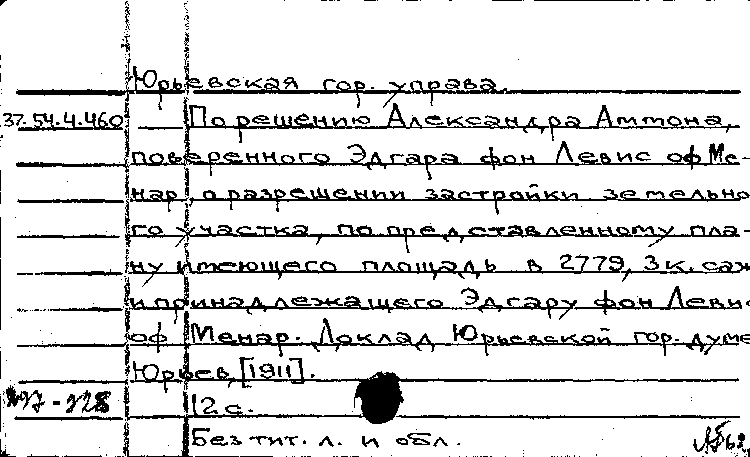 Юрьевская гор. управа.
37.54.4.460 По решению Александра Аммона,
поверенного Эдгара фон Левис оф Ме-
нар, о разрешении застройки земельно
го участка, по представленному пла-
ну имеющего площадь в 2779,3 к. саж
и принадлежащего Эдгару фон Левис
оф Менар. Доклад Юрьевской гор. думе
Юрьев, [1911].
12 с.
Без тит. л. и обл.